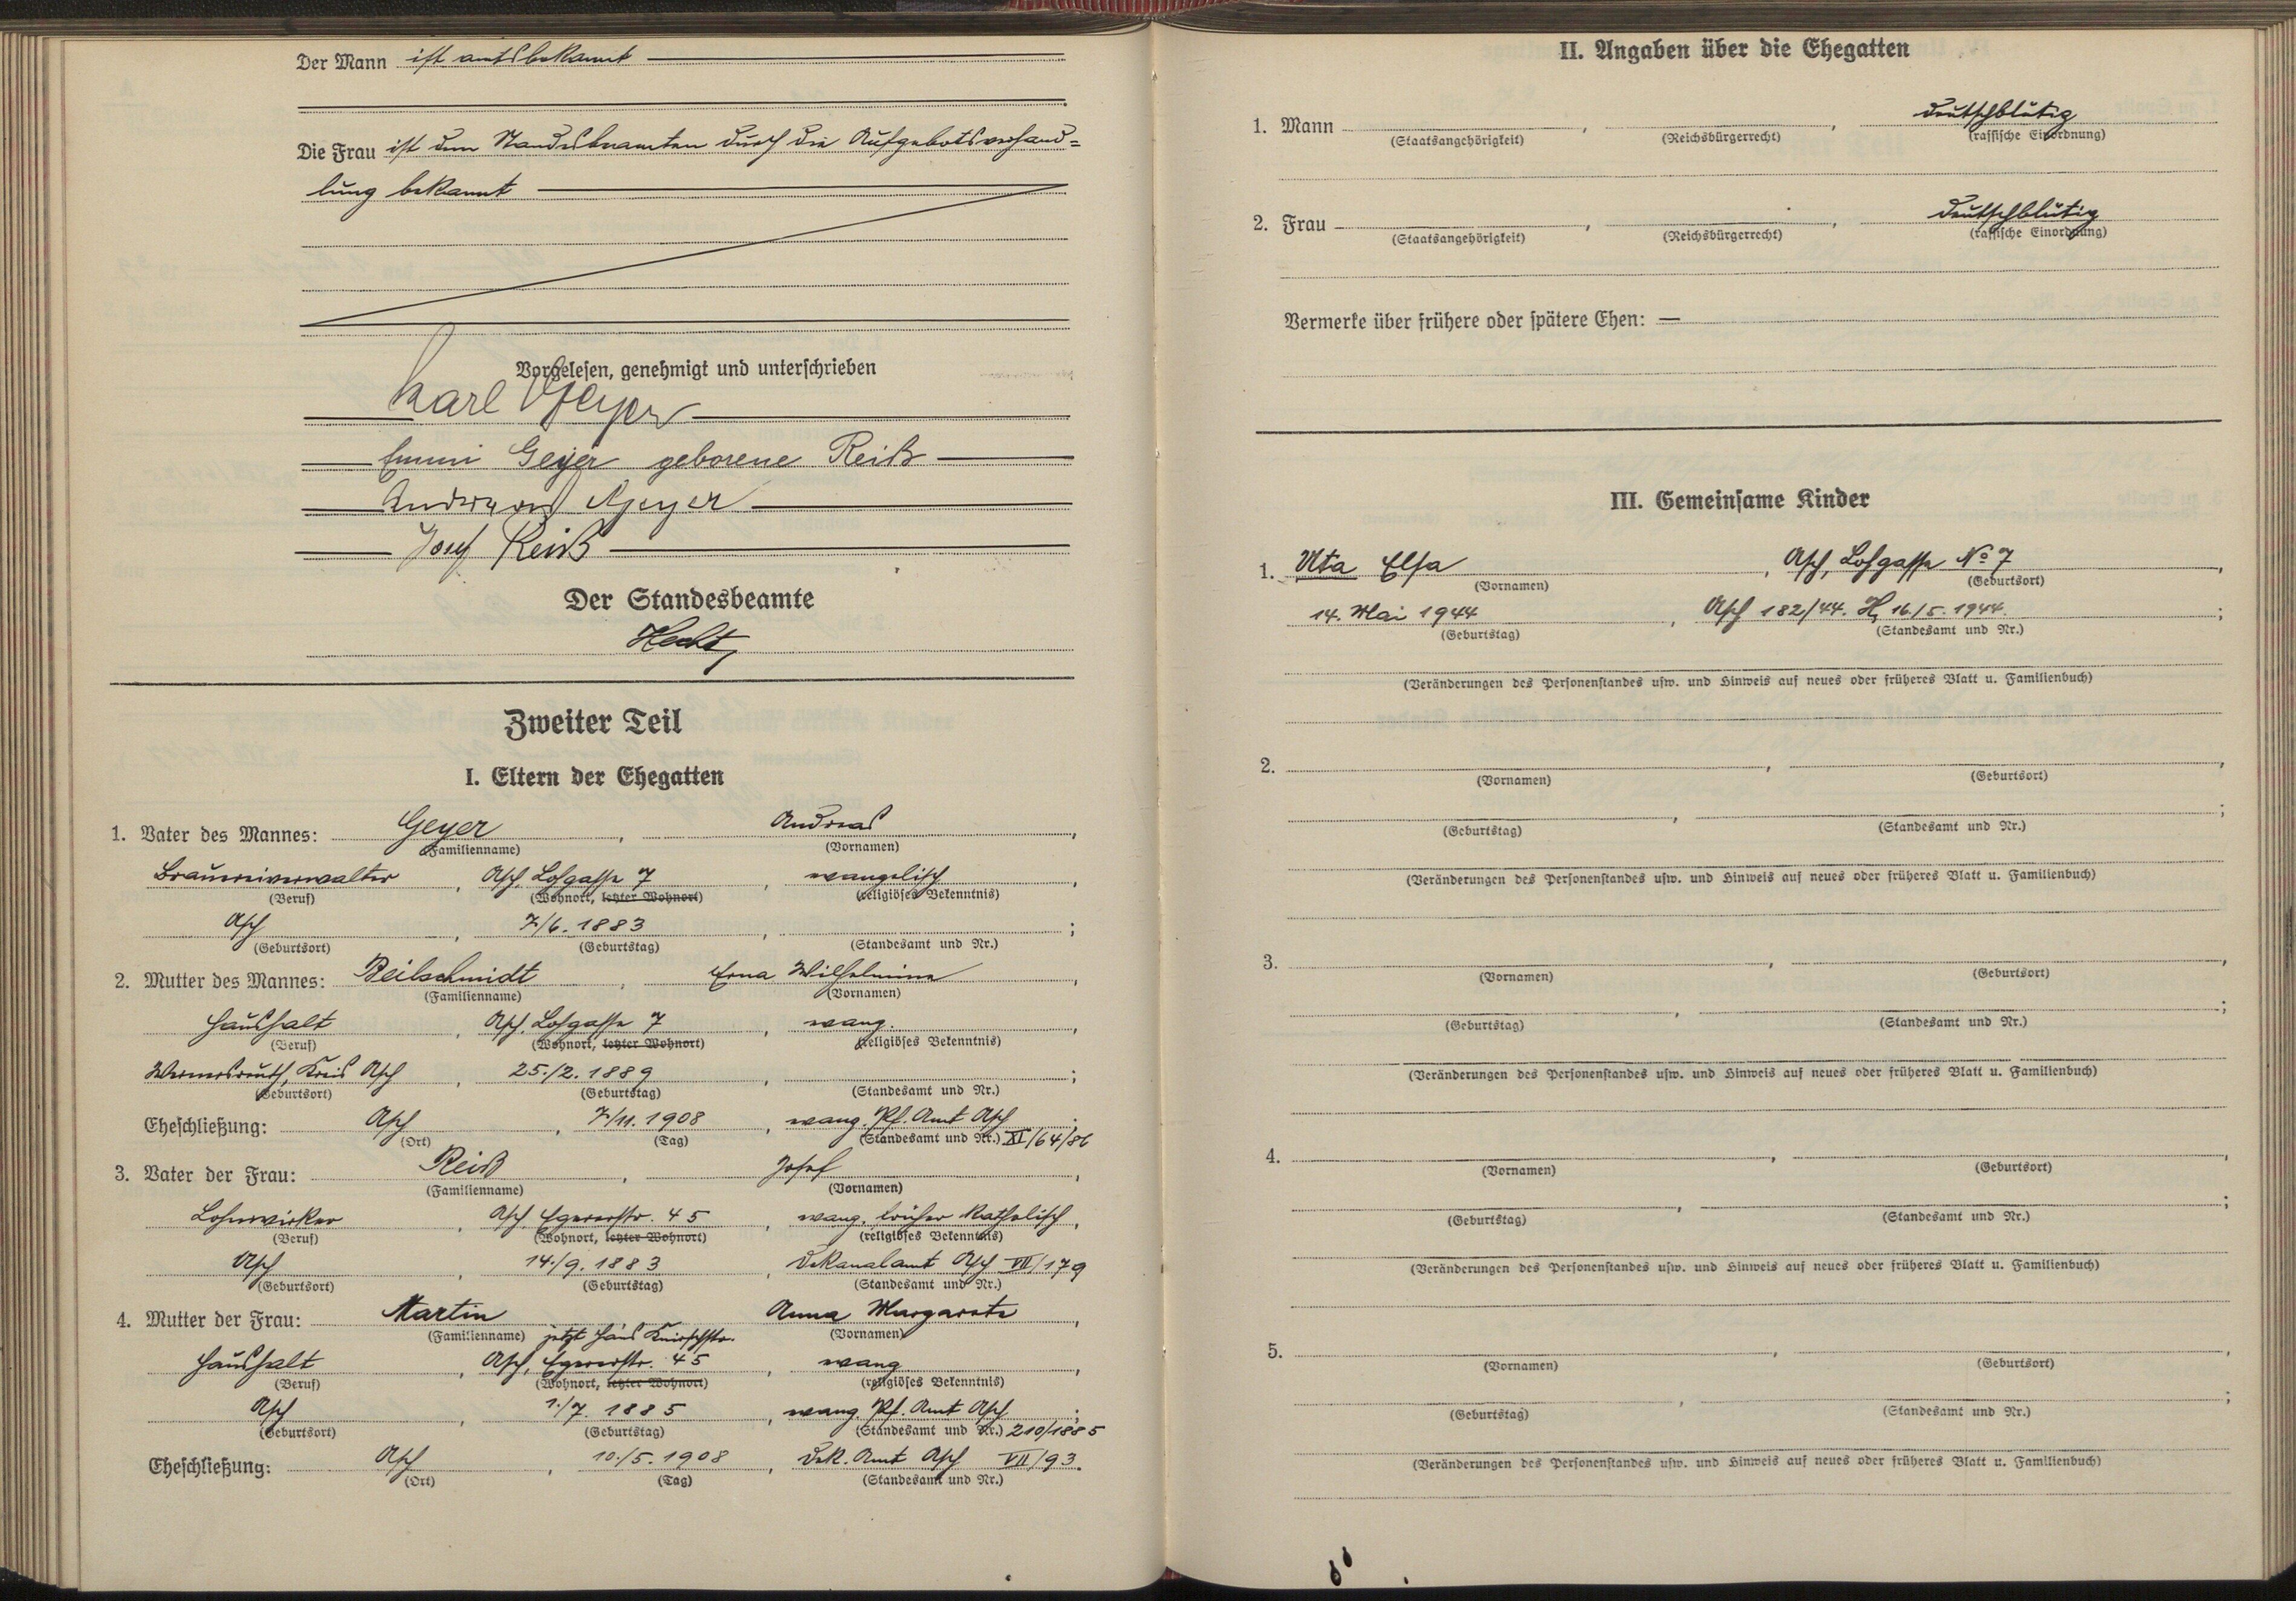 Der Mann ist amtsbekannt
Die Frau ist dem Standesbeamten durch die Aufgebotsverhand=
lung bekannt
Vorgelesen, genehmigt und unterschrieben
Karl Geyer
Emmi Geyer geborene Reiß
Andreas Geyer
Josef Reiß
Der Standesbeamte
Hecht
Zweiter Teil
I. Eltern der Ehegatten
1. Vater des Mannes: Geyer, Andreas,
(Familienname) (Vornamen)
Brauereiverwalter, Asch, Lohgasse 7, evangelisch,
(Beruf) (Wohnort, letzter Wohnort) (religiöses Bekenntnis)
Asch, 7/6. 1883, ;
(Geburtsort) (Geburtstag) (Standesamt und Nr.)
2. Mutter des Mannes: Beilschmidt, Erna Wilhelmine,
(Familienname) (Vornamen)
Haushalt, Asch, Lohgasse 7, evang.,
(Beruf) (Wohnort, letzter Wohnort) (religiöses Bekenntnis)
Wernersreuth, Kreis Asch, 25./2. 1889, ;
(Geburtsort) (Geburtstag) (Standesamt und Nr.)
Eheschließung: Asch, 7/11. 1908, evang. Pf. Amt Asch;
(Ort) (Tag) (Standesamt und Nr.) XI/64/86
3. Vater der Frau: Reiß, Josef,
(Familienname) (Vornamen)
Lohnwirker, Asch, Egererstr. 45, evang. früher katholisch,
(Beruf) (Wohnort, letzter Wohnort) (religiöses Bekenntnis)
Asch, 14./9. 1883, Dekanalamt Asch VII/179
(Geburtsort) (Geburtstag) (Standesamt und Nr.)
4. Mutter der Frau: Martin, Anna Margarete,
(Familienname) jetzt Hans Knirschstr. (Vornamen)
Haushalt, Asch, Egererstr. 45, evang,
(Beruf) (Wohnort, letzter Wohnort) (religiöses Bekenntnis)
Asch, 1./7. 1885, evang. Pf. Amt Asch;
(Geburtsort) (Geburtstag) (Standesamt und Nr.) 210/1885
Eheschließung: Asch, 10./5. 1908, Dek. Amt Asch VII/93.
(Ort) (Tag) (Standesamt und Nr.)
II. Angaben über die Ehegatten
1. Mann , , deutschblütig
(Staatsangehörigkeit) (Reichsbürgerrecht) (rassische Einordnung)
2. Frau , , deutschblütig
(Staatsangehörigkeit) (Reichsbürgerrecht) (rassische Einordnung)
Vermerke über frühere oder spätere Ehen: —
III. Gemeinsame Kinder
1. Uta Elsa, Asch, Lohgasse No 7,
(Vornamen) (Geburtsort)
14. Mai 1944, Asch 182/44. H, 16./5. 1944.;
(Geburtstag) (Standesamt und Nr.)
(Veränderungen des Personenstandes usw. und Hinweis auf neues oder früheres Blatt u. Familienbuch)
2. , ,
(Vornamen) (Geburtsort)
, ;
(Geburtstag) (Standesamt und Nr.)
(Veränderungen des Personenstandes usw. und Hinweis auf neues oder früheres Blatt u. Familienbuch)
3. , ,
(Vornamen) (Geburtsort)
, ;
(Geburtstag) (Standesamt und Nr.)
(Veränderungen des Personenstandes usw. und Hinweis auf neues oder früheres Blatt u. Familienbuch)
4. , ,
(Vornamen) (Geburtsort)
, ;
(Geburtstag) (Standesamt und Nr.)
(Veränderungen des Personenstandes usw. und Hinweis auf neues oder früheres Blatt u. Familienbuch)
5. , ,
(Vornamen) (Geburtsort)
, ;
(Geburtstag) (Standesamt und Nr.)
(Veränderungen des Personenstandes usw. und Hinweis auf neues oder früheres Blatt u. Familienbuch)